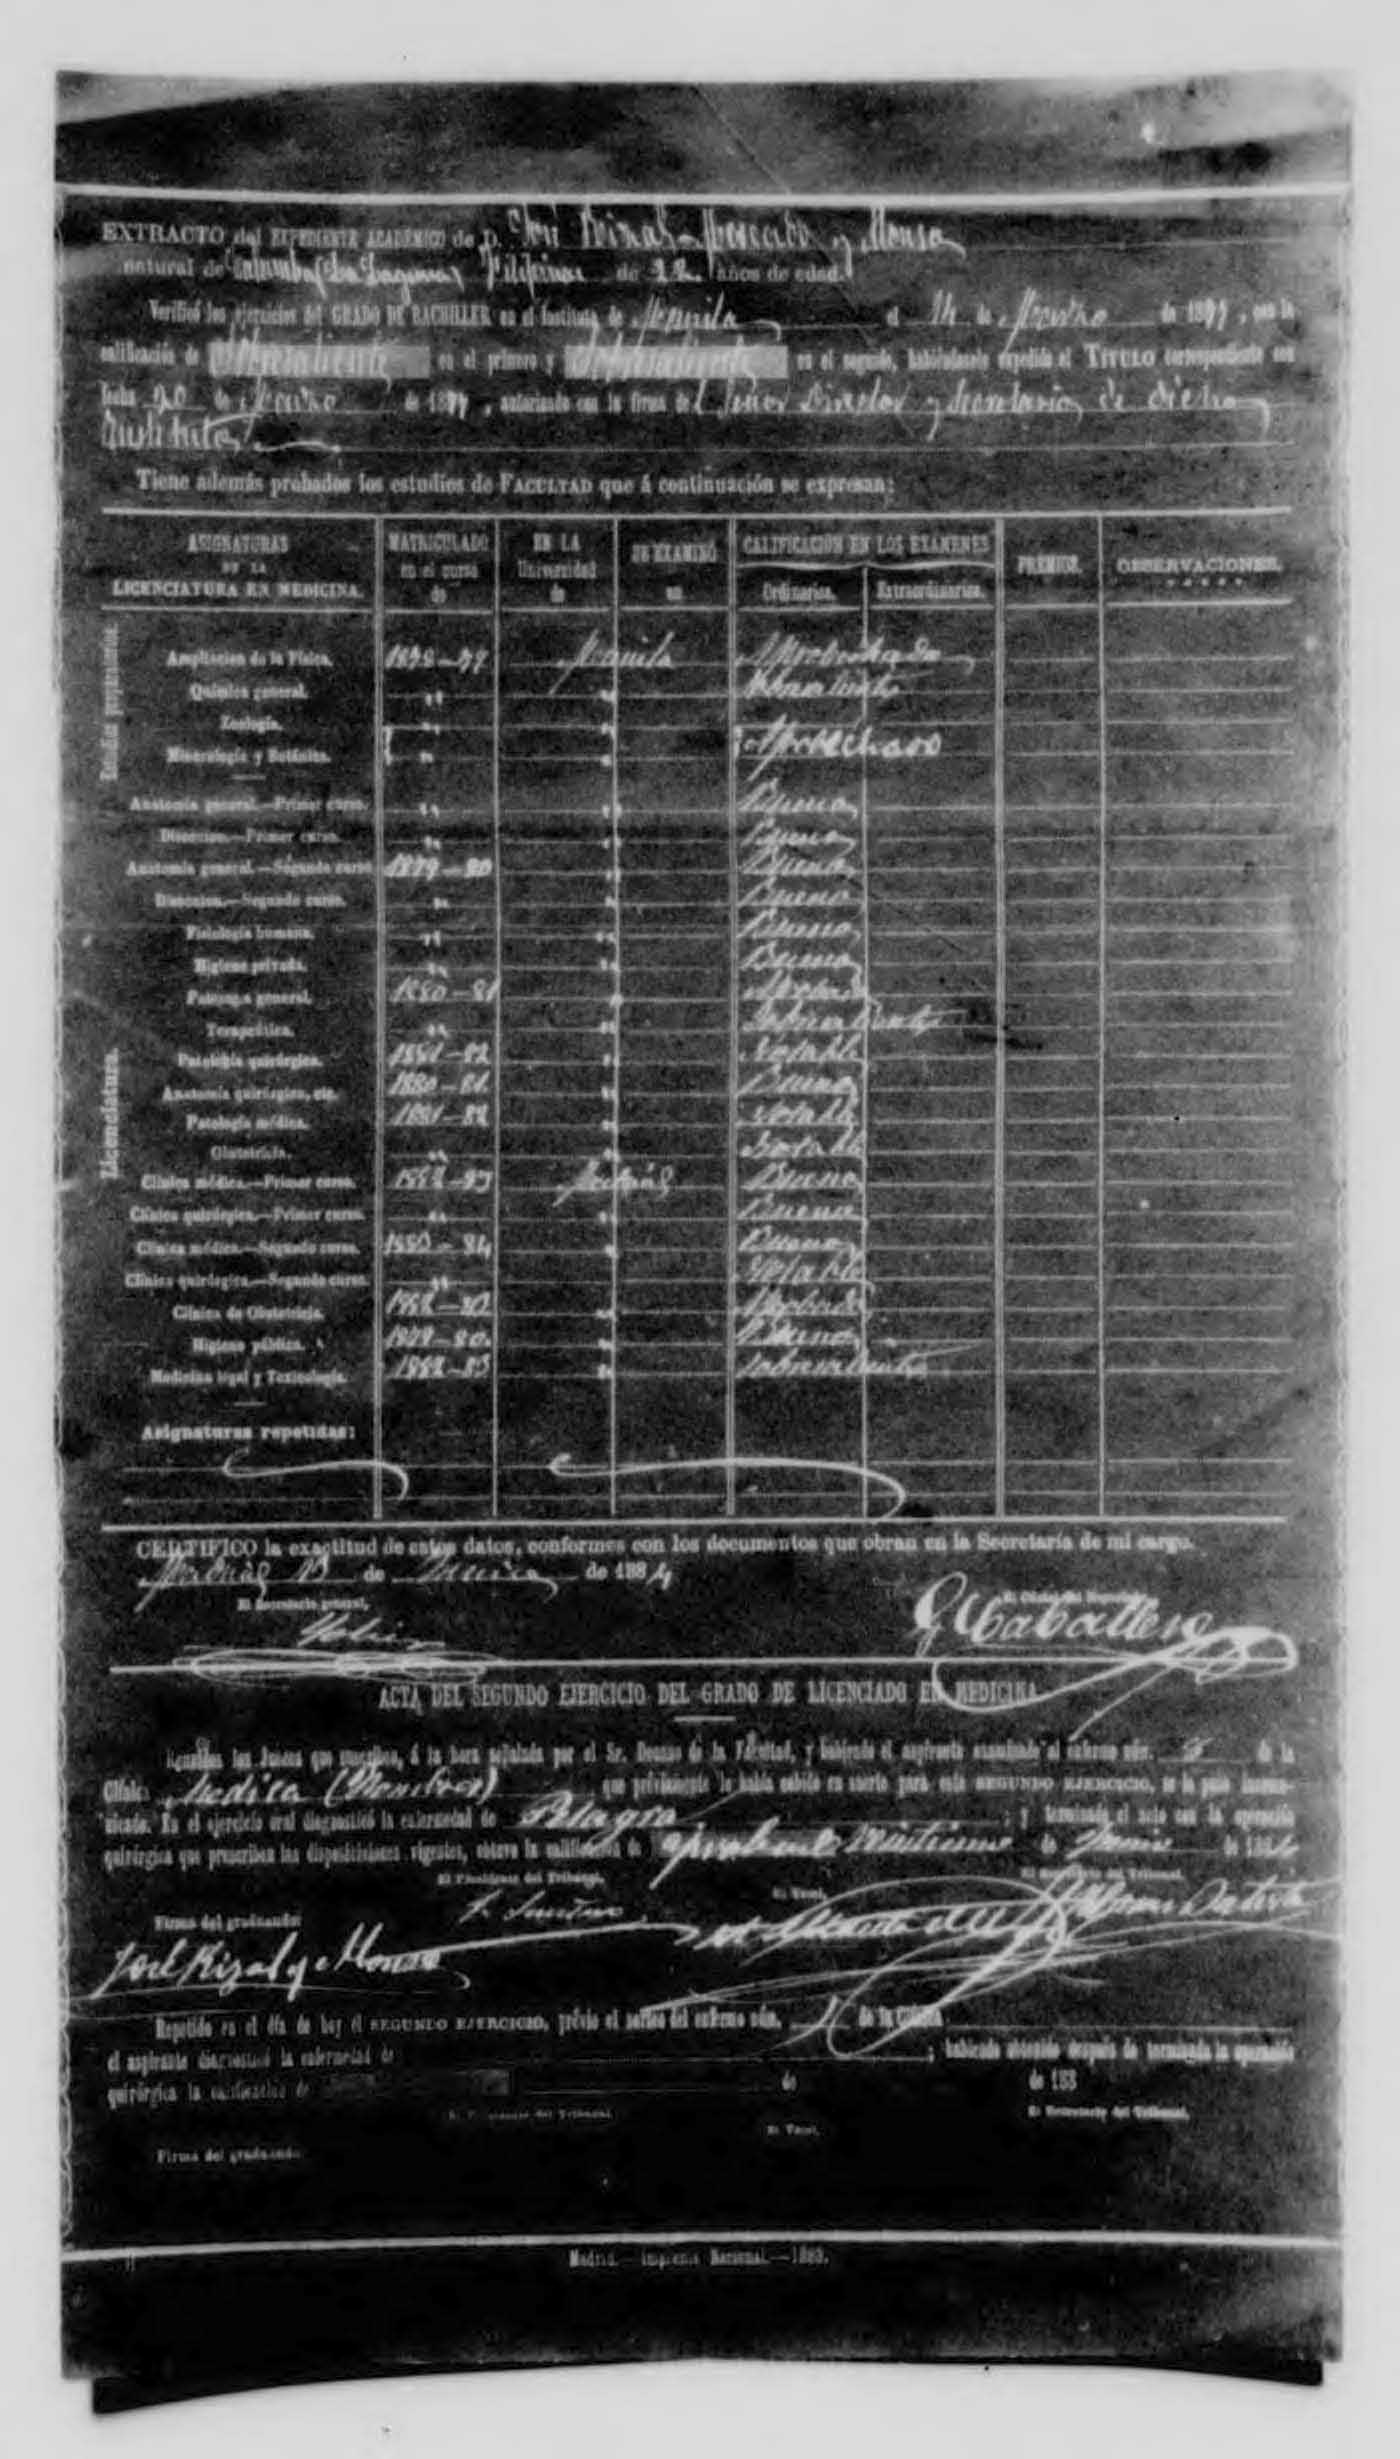 EXTRACTO del EXPEDIENTE ACADÉMICO de D. José Rizal Mercado y Alonso
natural de Calamba (La Laguna) Filipinas de 22 años de edad.
Verificó los ejercicios del GRADO DE BACHILLER en el Instituto de Manila el 14 de Marzo de 1877, con la
calificación de Sobresaliente en el primero y Sobresaliente en el segundo, habiéndosele expedido el TÍTULO correspondiente con
fecha 20 de Marzo de 1877, autorizado con la firma del Señor Director y Secretario de dicho
Instituto
Tiene además probados los estudios de FACULTAD que á continuación se expresan:
ASIGNATURAS DE LA LICENCIATURA EN MEDICINA. MATRICULADO en el curso de EN LA Universidad de SE EXAMINÓ en CALIFICACIÓN EN LOS EXÁMENES Ordinarios. Extraordinarios. PREMIOS. OBSERVACIONES.
Estudios preparatorios.
Ampliacion de la Física. 1878-79 Manila Aprovechado
Química general. " " Sobresaliente
Zoología. " "
Mineralogía y Botánica. " " Aprovechado
Licenciatura.
Anatomía general.—Primer curso. " " Bueno
Diseccion.—Primer curso. " " Bueno
Anatomía general.—Segundo curso. 1879-80 " Bueno
Diseccion.—Segundo curso. " " Bueno
Fisiología humana. " " Bueno
Higiene privada. " " Bueno
Patología general. 1880-81 " Aprobado
Terapéutica. " " Sobresaliente
Patología quirúrgica. 1881-82 " Notable
Anatomía quirúrgica, etc. 1880-81 " Bueno
Patología médica. 1881-82 " Notable
Obstetricia. " " Notable
Clínica médica.—Primer curso. 1882-83 Madrid Bueno
Clínica quirúrgica.—Primer curso. " " Bueno
Clínica médica.—Segundo curso. 1883-84 " Bueno
Clínica quirúrgica.—Segundo curso. " " Notable
Clínica de Obstetricia. 1882-83 " Aprobado
Higiene pública. 1879-80 " Bueno
Medicina legal y Toxicología. 1882-83 " Sobresaliente
Asignaturas repetidas:
CERTIFICO la exactitud de estos datos, conformes con los documentos que obran en la Secretaría de mi cargo.
Madrid de Junio de 1884
El Secretario general, El Oficial del Negociado
G Caballero
ACTA DEL SEGUNDO EJERCICIO DEL GRADO DE LICENCIADO EN MEDICINA
Reunidos los Jueces que suscriben, á la hora señalada por el Sr. Decano de la Facultad, y habiendo el aspirante examinado al enfermo núm. de la
Clínica Medica (Hombres) que préviamente le había cabido en suerte para este SEGUNDO EJERCICIO, se le puso incomu-
nicado. En el ejercicio oral diagnosticó la enfermedad de Pelagra; y terminado el acto con la operación
quirúrgica que prescriben las disposiciones vigentes, obtuvo la calificación de aprobado de Junio de 1884
El Presidente del Tribunal, El Vocal, El Secretario del Tribunal,
Firma del graduando:
José Rizal y Alonso
Repetido en el día de hoy el SEGUNDO EJERCICIO, prévio el sorteo del enfermo núm. de la Clínica
el aspirante diagnosticó la enfermedad de ; habiendo obtenido después de terminada la operación
quirúrgica la calificación de de de 188
El Presidente del Tribunal, El Vocal, El Secretario del Tribunal,
Firma del graduando
Madrid.—Imprenta Nacional.—1883.